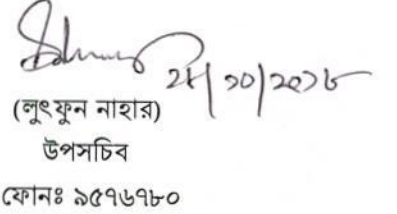 ২৪/১০/২০১৮
(লুৎফুন নাহার)
উপসচিব
ফোনঃ ৯৫৭৬৭৮০